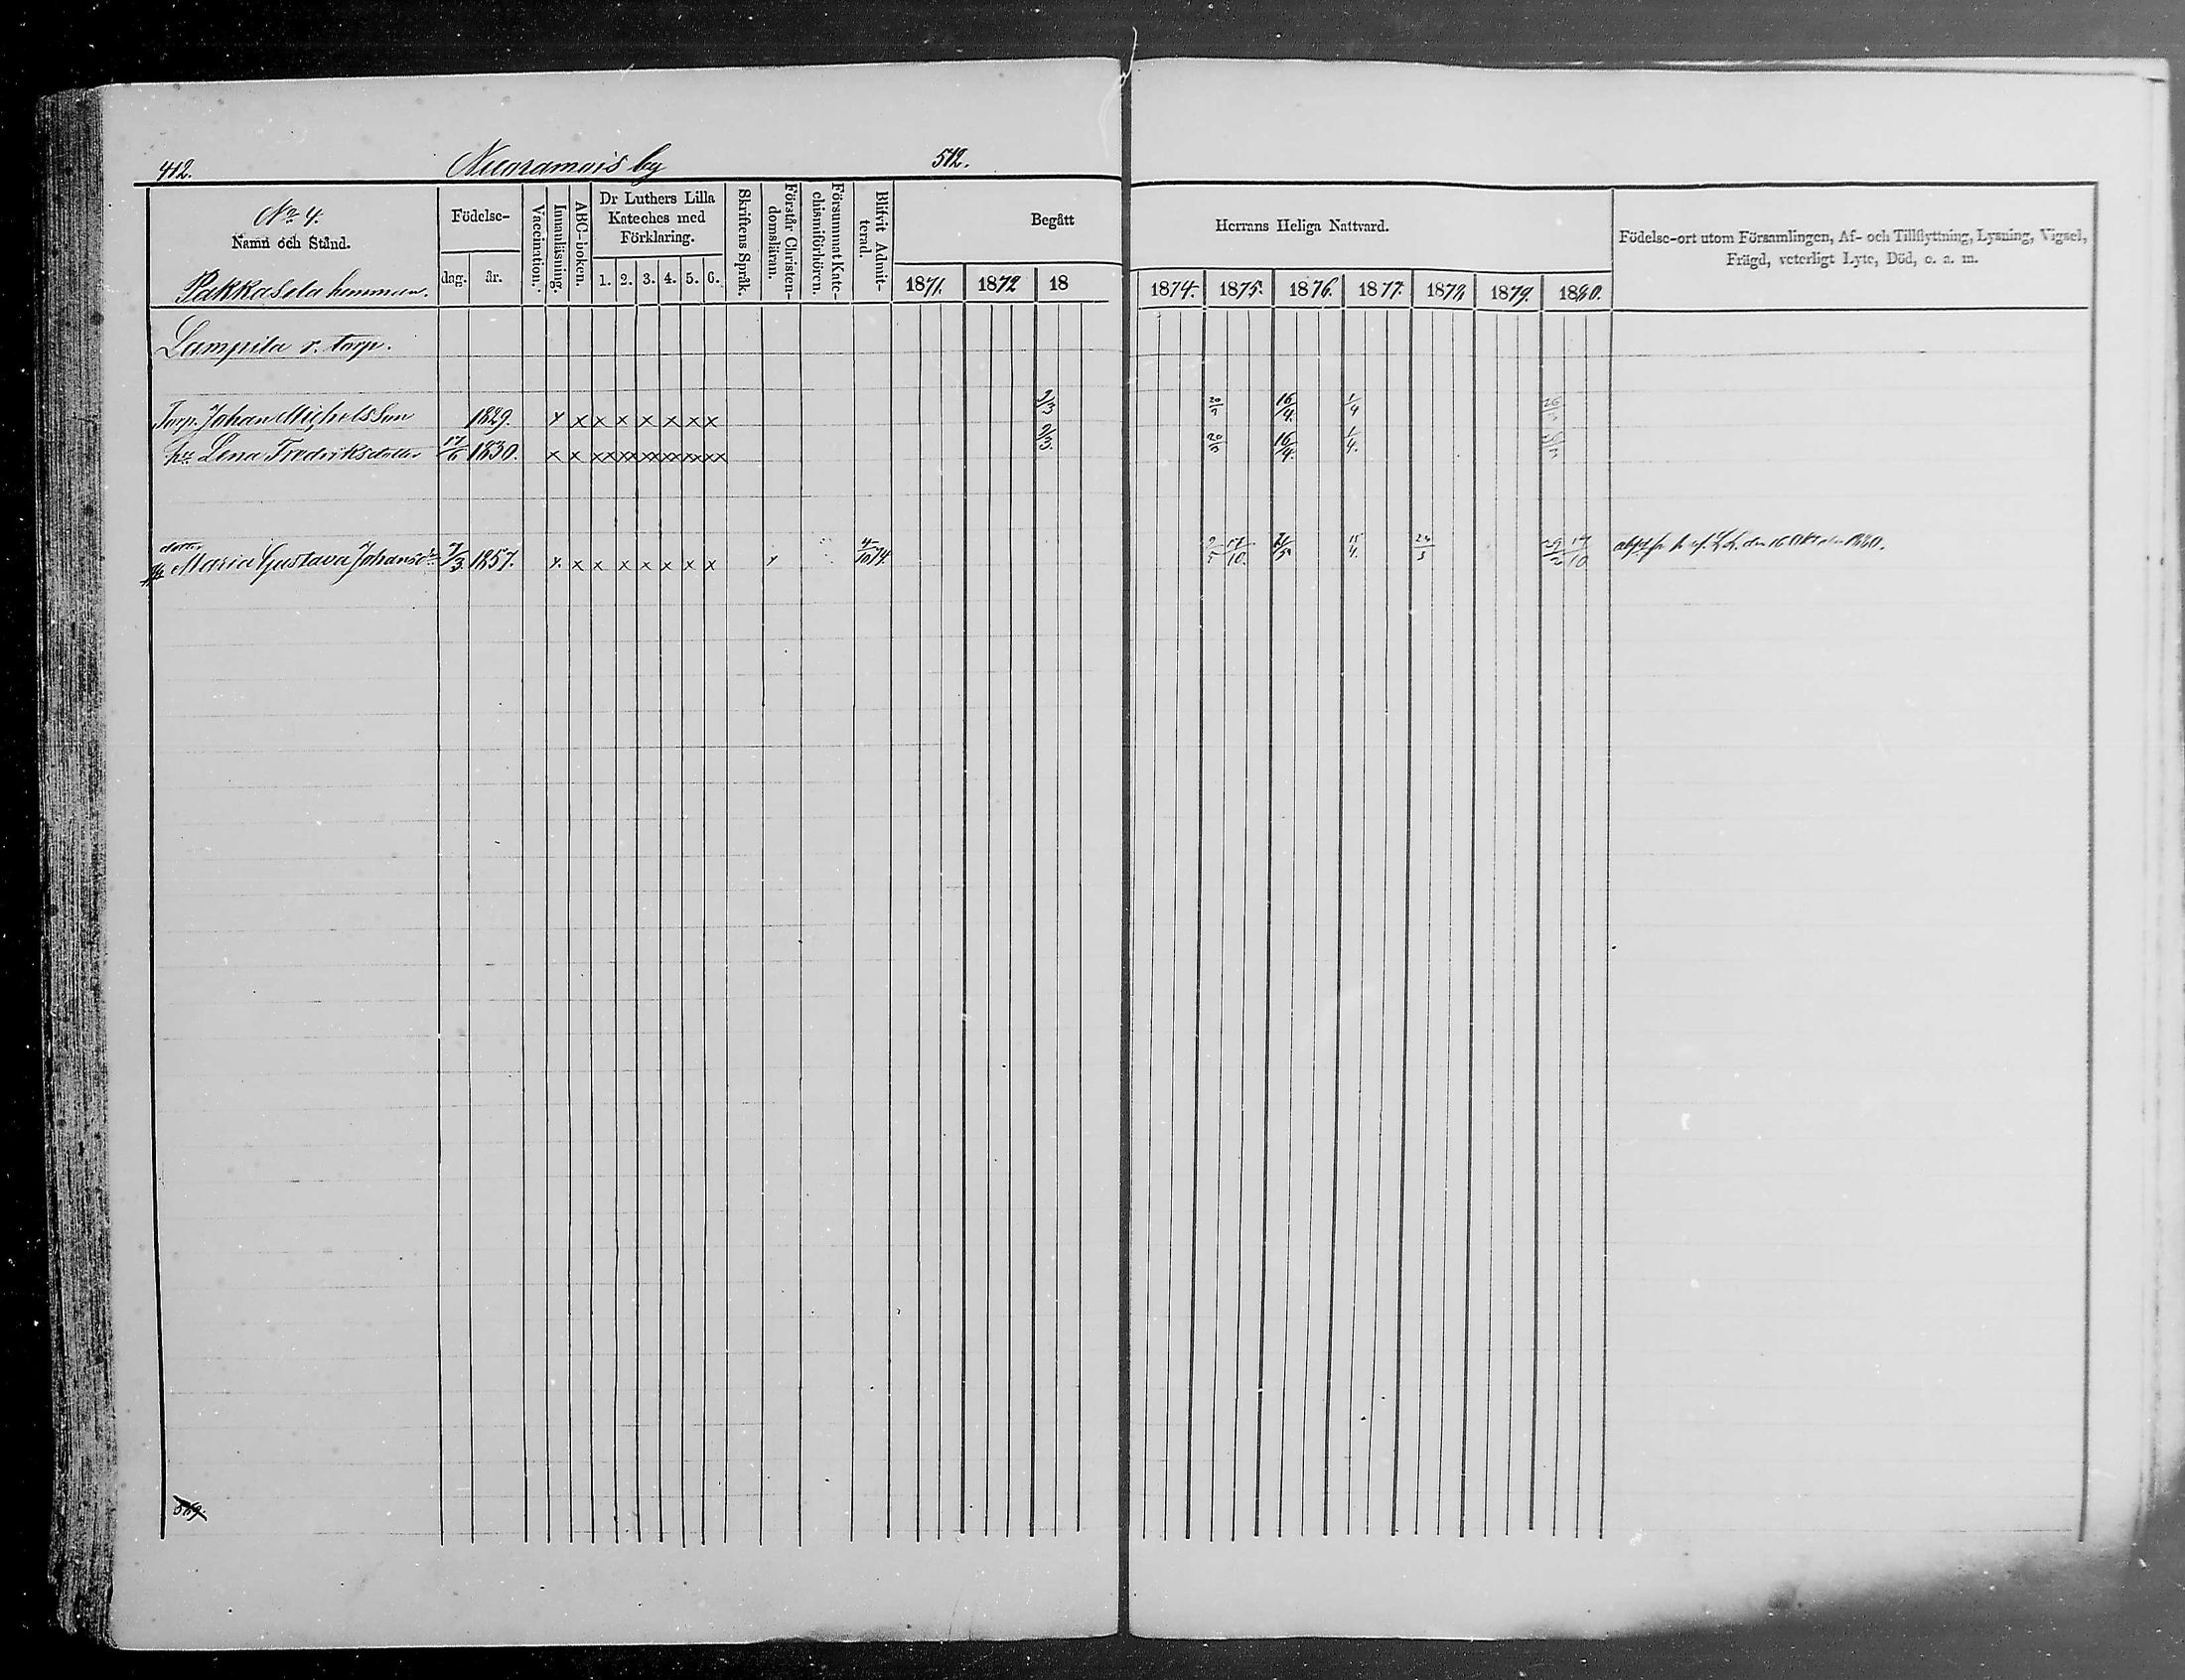 412.
by
512.
No 4.
Namn och Stånd.
Pakkasela hemman.
Födelse-
dag.
år.
Vaccination.
Innanläsning.
ABC-boken.
Dr Luthers Lilla
Kateches med
Förklaring.
1. 2. 3. 4. 5. 6.
Skriftens Språk.
Förstår Christen-
domsläran.
Försummat Kate-
chismiförhören.
Blifvit Admit-
terad.
Begått
1871. 1872 18
Herrans Heliga Nattvard.
1874. 1875. 1876. 1877. 1878 1879. 1880.
Födelse-ort utom Församlingen, Af- och Tillflyttning, Lysning, Vigsel,
Frägd, veterligt Lyte, Död, o. a. m.
Lampila r. torp.
Torp. Johan Michelsson 1829. x x x x x x x x 9/3 20/3 16/4. 1/4
hu Lena Fredriksdotter 17/6 1830. x x xx xx xx xx xx xx 9/3. 20/3 16/4. 1/4.
dotter
Maria Gustava Johansdr 7/3 1857. x x x x x x x x x 4/10 74. 17/10. 21/5 15/4. 24/3 17/10 den 16 Oktober 1880.